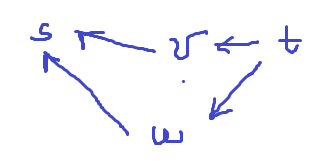 s v t
w